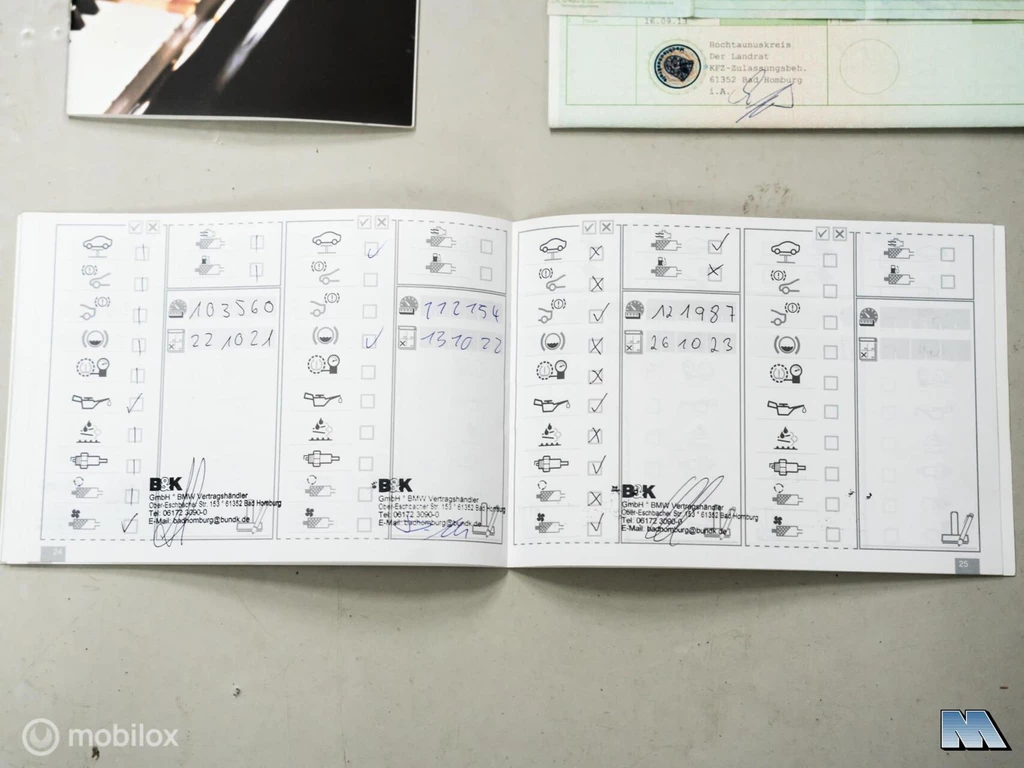 16.09.13
Hochtaunuskreis
Der Landrat
KFZ-Zulassungsbeh.
61352 Bad Homburg
i.A.
103560
221021
B&K
GmbH * BMW Vertragshändler
Ober-Eschbacher Str. 153 * 61352 Bad Homburg
Tel: 06172 3090-0
E-Mail: badhomburg@bundk.de
24
112154
131022
B&K
GmbH * BMW Vertragshändler
Ober-Eschbacher Str. 153 * 61352 Bad Homburg
Tel: 06172 3090-0
E-Mail: badhomburg@bundk.de
121987
261023
B&K
GmbH * BMW Vertragshändler
Ober-Eschbacher Str. 153 * 61352 Bad Homburg
Tel: 06172 3090-0
E-Mail: badhomburg@bundk.de
25
mobilox
M